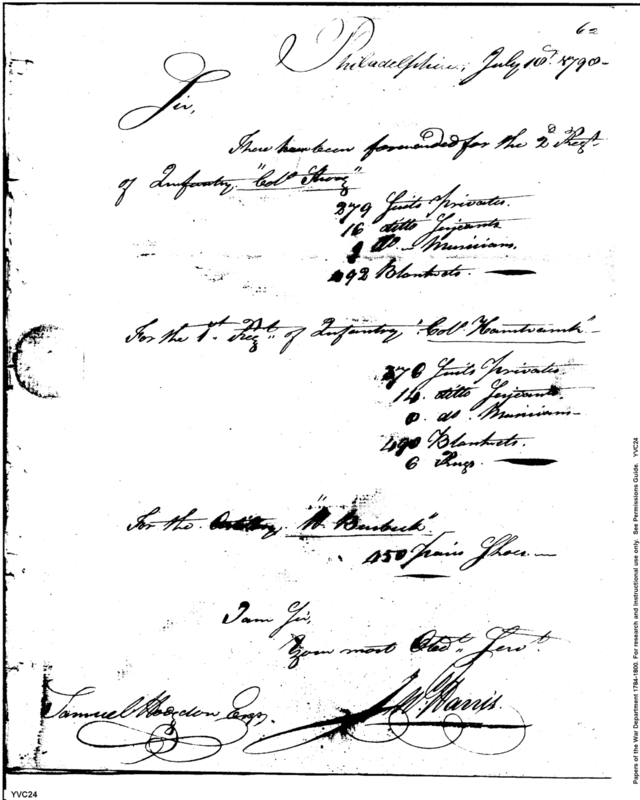 62
Philadelphia, July 10th. 1798-
Sir,
There have been forwarded for the 2d Regt.
of Infantry, "Coll Strong"
279 Suits Privates.
16 ditto Serjeants
do - Musicians.
492 Blankets.
For the 1st. Regt. of Infantry, "Coll Hamtramck"
276 Suits Privates
14 ditto Serjeants
8 do Musicians-
490 Blankets.
6 Rugs.
For the Artillery, "H Burbeck"
450 pairs Shoes.
I am Sir,
Your most Obedt. Servt.
J M Harris
Samuel Hodgdon Esqr.
YVC24
Papers of the War Department 1784-1800. For research and instructional use only. See Permissions Guide. YVC24